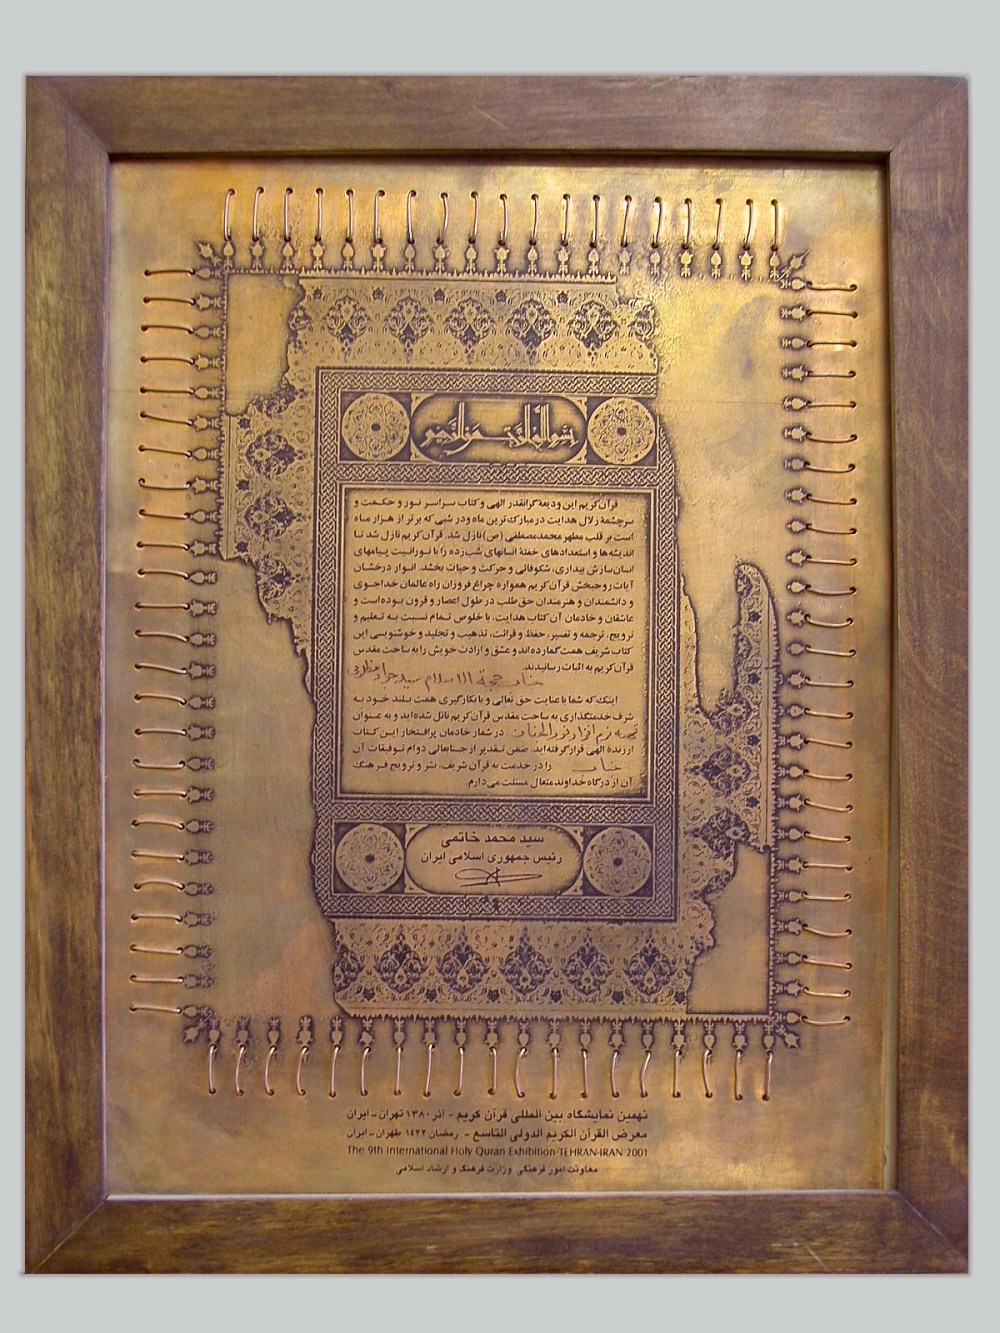 بسم الله الرحمن الرحیم
قرآن کریم این ودیعهٔ گرانقدر الهی و کتاب سراسر نور و حکمت و
سرچشمهٔ زلال هدایت در مبارک‌ترین ماه و در شبی که برتر از هزار ماه
است بر قلب مطهر محمد مصطفی (ص) نازل شد. قرآن کریم نازل شد تا
اندیشه‌ها و استعدادهای خفتهٔ انسانهای شب‌زده را با نورانیت پیامهای
انسان‌سازش بیداری، شکوفائی و حرکت و حیات بخشد. انوار درخشان
آیات روحبخش قرآن کریم همواره چراغ فروزان راه عالمان خداجوی
و دانشمندان و هنرمندان حق‌طلب در طول اعصار و قرون بوده است و
عاشقان و خادمان آن کتاب هدایت، با خلوص تمام نسبت به تعلیم و
ترویج، ترجمه و تفسیر، حفظ و قرائت، تذهیب و تجلید و خوشنویسی این
کتاب شریف همت گمارده‌اند و عشق و ارادت خویش را به ساحت مقدس
قرآن کریم به اثبات رسانیدند.
جناب حجة الاسلام سید جواد
اینک که شما با عنایت حق تعالی و با بکارگیری همت بلند خود به
شرف خدمتگذاری به ساحت مقدس قرآن کریم نائل شده‌اید و به عنوان
تهیه نرم افزار نور الجنان در شمار خادمان پرافتخار این کتاب
ارزندهٔ الهی قرار گرفته‌اید. ضمن تقدیر از جنابعالی دوام توفیقات آن
جناب را در خدمت به قرآن شریف، نشر و ترویج فرهنگ
آن از درگاه خداوند متعال مسئلت می‌دارم.
سید محمد خاتمی
رئیس جمهوری اسلامی ایران
نهمین نمایشگاه بین المللی قرآن کریم - آذر ۱۳۸۰ تهران - ایران
معرض القرآن الکریم الدولی التاسع - رمضان ۱۴۲۲ طهران - ایران
The 9th International Holy Quran Exhibition-TEHRAN-IRAN 2001
معاونت امور فرهنگی وزارت فرهنگ و ارشاد اسلامی